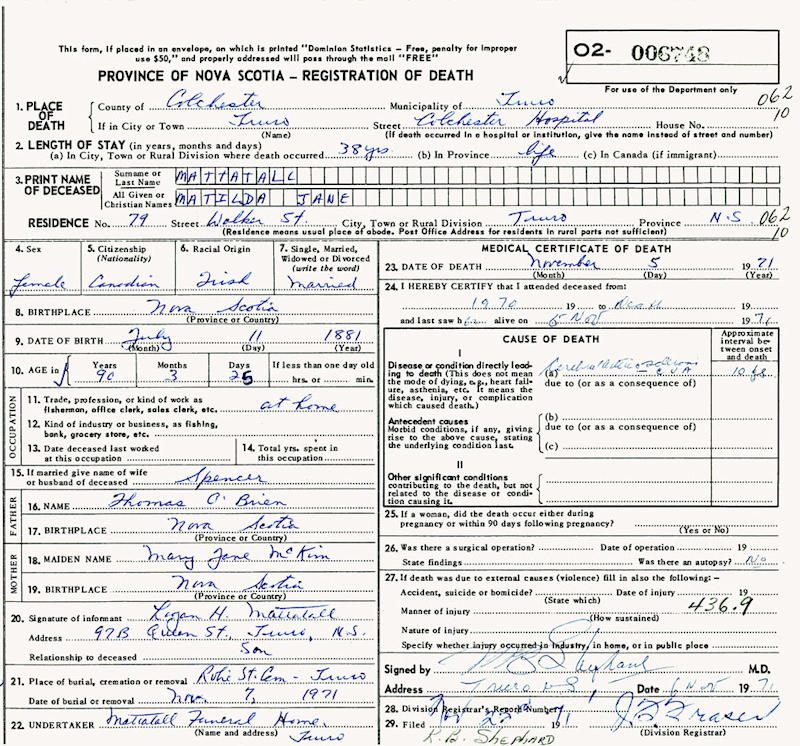 This form, if placed in an envelope, on which is printed "Dominion Statistics — Free, penalty for improper
use $50," and properly addressed will pass through the mail "FREE"
O2- 006748
For use of the Department only
PROVINCE OF NOVA SCOTIA — REGISTRATION OF DEATH
062
10
1. PLACE OF DEATH
County of Colchester Municipality of Truro
If in City or Town Truro Street Colchester Hospital House No.
(Name) (If death occurred in a hospital or institution, give the name instead of street and number)
2. LENGTH OF STAY (in years, months and days)
(a) In City, Town or Rural Division where death occurred 38 yrs. (b) In Province life (c) In Canada (if immigrant)
3. PRINT NAME OF DECEASED
Surname or Last Name MATTATALL
All Given or Christian Names MATILDA JANE
RESIDENCE No. 79 Street Walker St. City, Town or Rural Division Truro Province N.S. 062
(Residence means usual place of abode. Post Office Address for residents in rural parts not sufficient) 10
4. Sex
female
5. Citizenship (Nationality)
Canadian
6. Racial Origin
Irish
7. Single, Married, Widowed or Divorced (write the word)
Married
8. BIRTHPLACE Nova Scotia
(Province or Country)
9. DATE OF BIRTH July 11 1881
(Month) (Day) (Year)
10. AGE in Years 90 Months 3 Days 25 If less than one day old
hrs. or min.
OCCUPATION
11. Trade, profession, or kind of work as
fisherman, office clerk, sales clerk, etc. at home
12. Kind of industry or business, as fishing,
bank, grocery store, etc.
13. Date deceased last worked
at this occupation
14. Total yrs. spent in
this occupation
15. If married give name of wife
or husband of deceased Spencer
FATHER
16. NAME Thomas O'Brien
17. BIRTHPLACE Nova Scotia
(Province or Country)
MOTHER
18. MAIDEN NAME Mary Jane McKim
19. BIRTHPLACE Nova Scotia
(Province or Country)
20. Signature of informant Logan H. Mattatall
Address 97B St. Truro, N.S.
Relationship to deceased Son
21. Place of burial, cremation or removal Robie St. Cem - Truro
Date of burial or removal Nov. 7, 1971
22. UNDERTAKER Mattatall Funeral Home
(Name and address) Truro
MEDICAL CERTIFICATE OF DEATH
23. DATE OF DEATH November 5 1971
(Month) (Day) (Year)
24. I HEREBY CERTIFY that I attended deceased from:
1970 19 to death 19
and last saw her alive on 5 Nov 1971
CAUSE OF DEATH
Approximate interval between onset and death
I
Disease or condition directly leading to death (This does not mean the mode of dying, e.g., heart failure, asthenia, etc. It means the disease, injury, or complication which caused death.)
(a) CVA
10 
due to (or as a consequence of)
Antecedent causes
Morbid conditions, if any, giving rise to the above cause, stating the underlying condition last.
(b)
due to (or as a consequence of)
(c)
II
Other significant conditions
contributing to the death, but not related to the disease or condition causing it.
25. If a woman, did the death occur either during
pregnancy or within 90 days following pregnancy?
(Yes or No)
26. Was there a surgical operation? Date of operation 19
State findings Was there an autopsy? No
27. If death was due to external causes (violence) fill in also the following:—
Accident, suicide or homicide? Date of injury 19
(State which)
Manner of injury 436.9
(How sustained)
Nature of injury
Specify whether injury occurred in industry, in home, or in public place
Signed by M.D.
Address Truro NS Date 6 Nov 1971
28. Division Registrar's Report Number
29. Filed Nov 22nd 1971 J.F. Fraser
(Division Registrar)
R.B. SHEPHARD